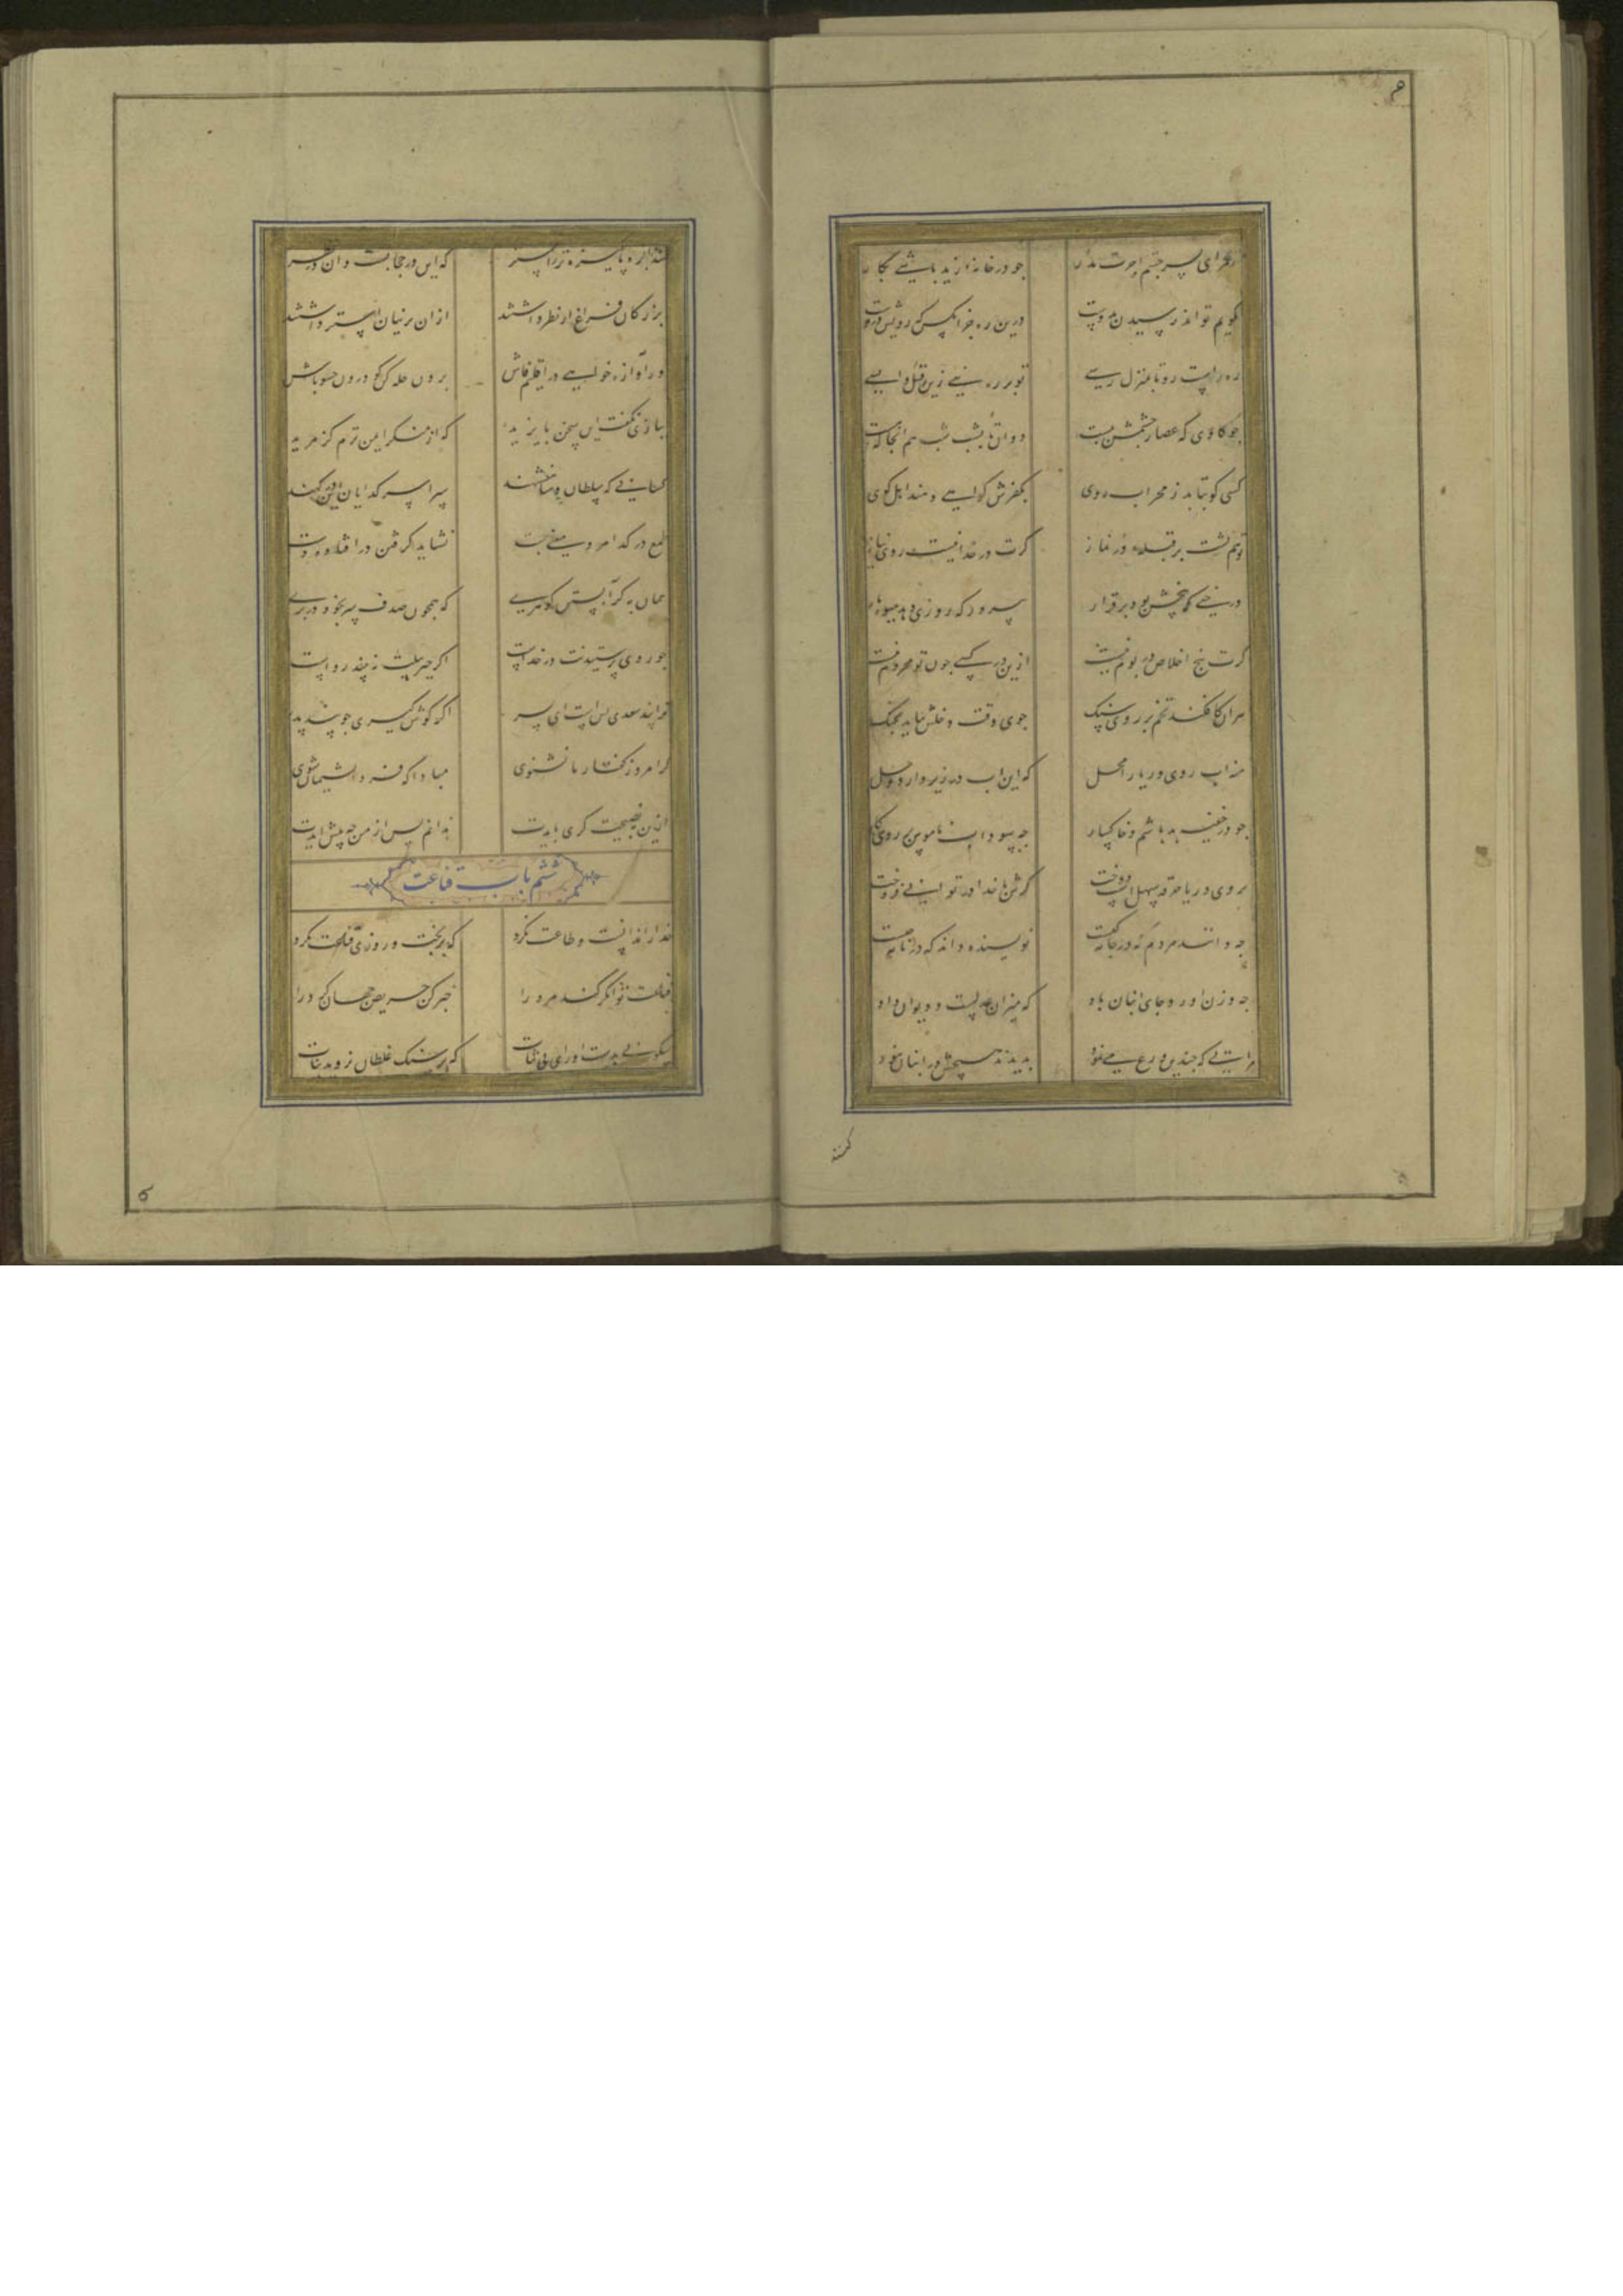 ز عمرو ای پسر چشم اجرت مدار جو در خانه زید باشی بکار
نکویم تواند رسیدن بدوست درین ره جز انکس که رویش دروست
ره راست رو تا بمنزل رسی تو بر ره نئی زین قبل واپسی
جو کاوی که عصار جشمش ببست دوان تا بشب شب هم انجا که هست
کسی کو بتابد ز محراب روی بکفرش کواهی دهند اهل کوی
تو هم پشت بر قبله در نماز کرت در خدا نیست روی نیاز
درختی که بیخش بود برقرار بپرور که روزی دهد میوه بار
کرت بیخ اخلاص در بوم نیست ازین در کسی جون تو محروم نیست
هر ان کافکند تخم بر روی سنک جوی وقت دخلش نیاید بچنک
منه اب روی ریا را محل که این اب در زیر دارد وحل
جو در خفیه بد باشم و خاکسار چه سود اب ناموس بر روی کار
بروی و ریا خرقه سهلست دوخت کرش با خدا در توانی فروخت
جه دانند مردم که در جامه کیست نویسنده داند که در نامه چیست
جه وزن اورد جای انبان باد که میزان عدلست و دیوان داد
مرایی که جندین ورع می نمود بدیدند هیچش در انبان نبود
کنند
کنند ابره پاکیزه تر ز استر که این در حجابست و ان در نظر
بزرکان فراغ از نظر داشتند ازان پرنیان استر داشتند
ور آوازه خواهی در اقلیم فاش برون حله کن کو درون حشو باش
ببازی نکفت این سخن بایزید که از منکر ایمن ترم کز مرید
کسانی که سلطان و شاهنشهند سراسر کدایان این درکهند
طمع در کدا مرد معنی نبست نشاید کرفتن در افتاده دست
همان به کر آبستن کوهری که همچون صدف سر بخود در بری
جو روی پرستیدنت در خداست اکر جبرئیلت نه بیند رواست
ترا پند سعدی بس است ای پسر اکر کوش کیری جو پند پدر
کر امروز کفتار ما نشنوی مبادا که فردا پشیمان شوی
ازین به نصیحت کری بایدت ندانم پس از من چه پیش ایدت
ششم باب قناعت
خدا را ندانست و طاعت نکرد که بر بخت و روزی قناعت نکرد
قناعت توانکر کند مرد را خبر کن حریص جهان کرد را
سکونی بدست اور ای بی ثبات که بر سنک غلطان نروید نبات